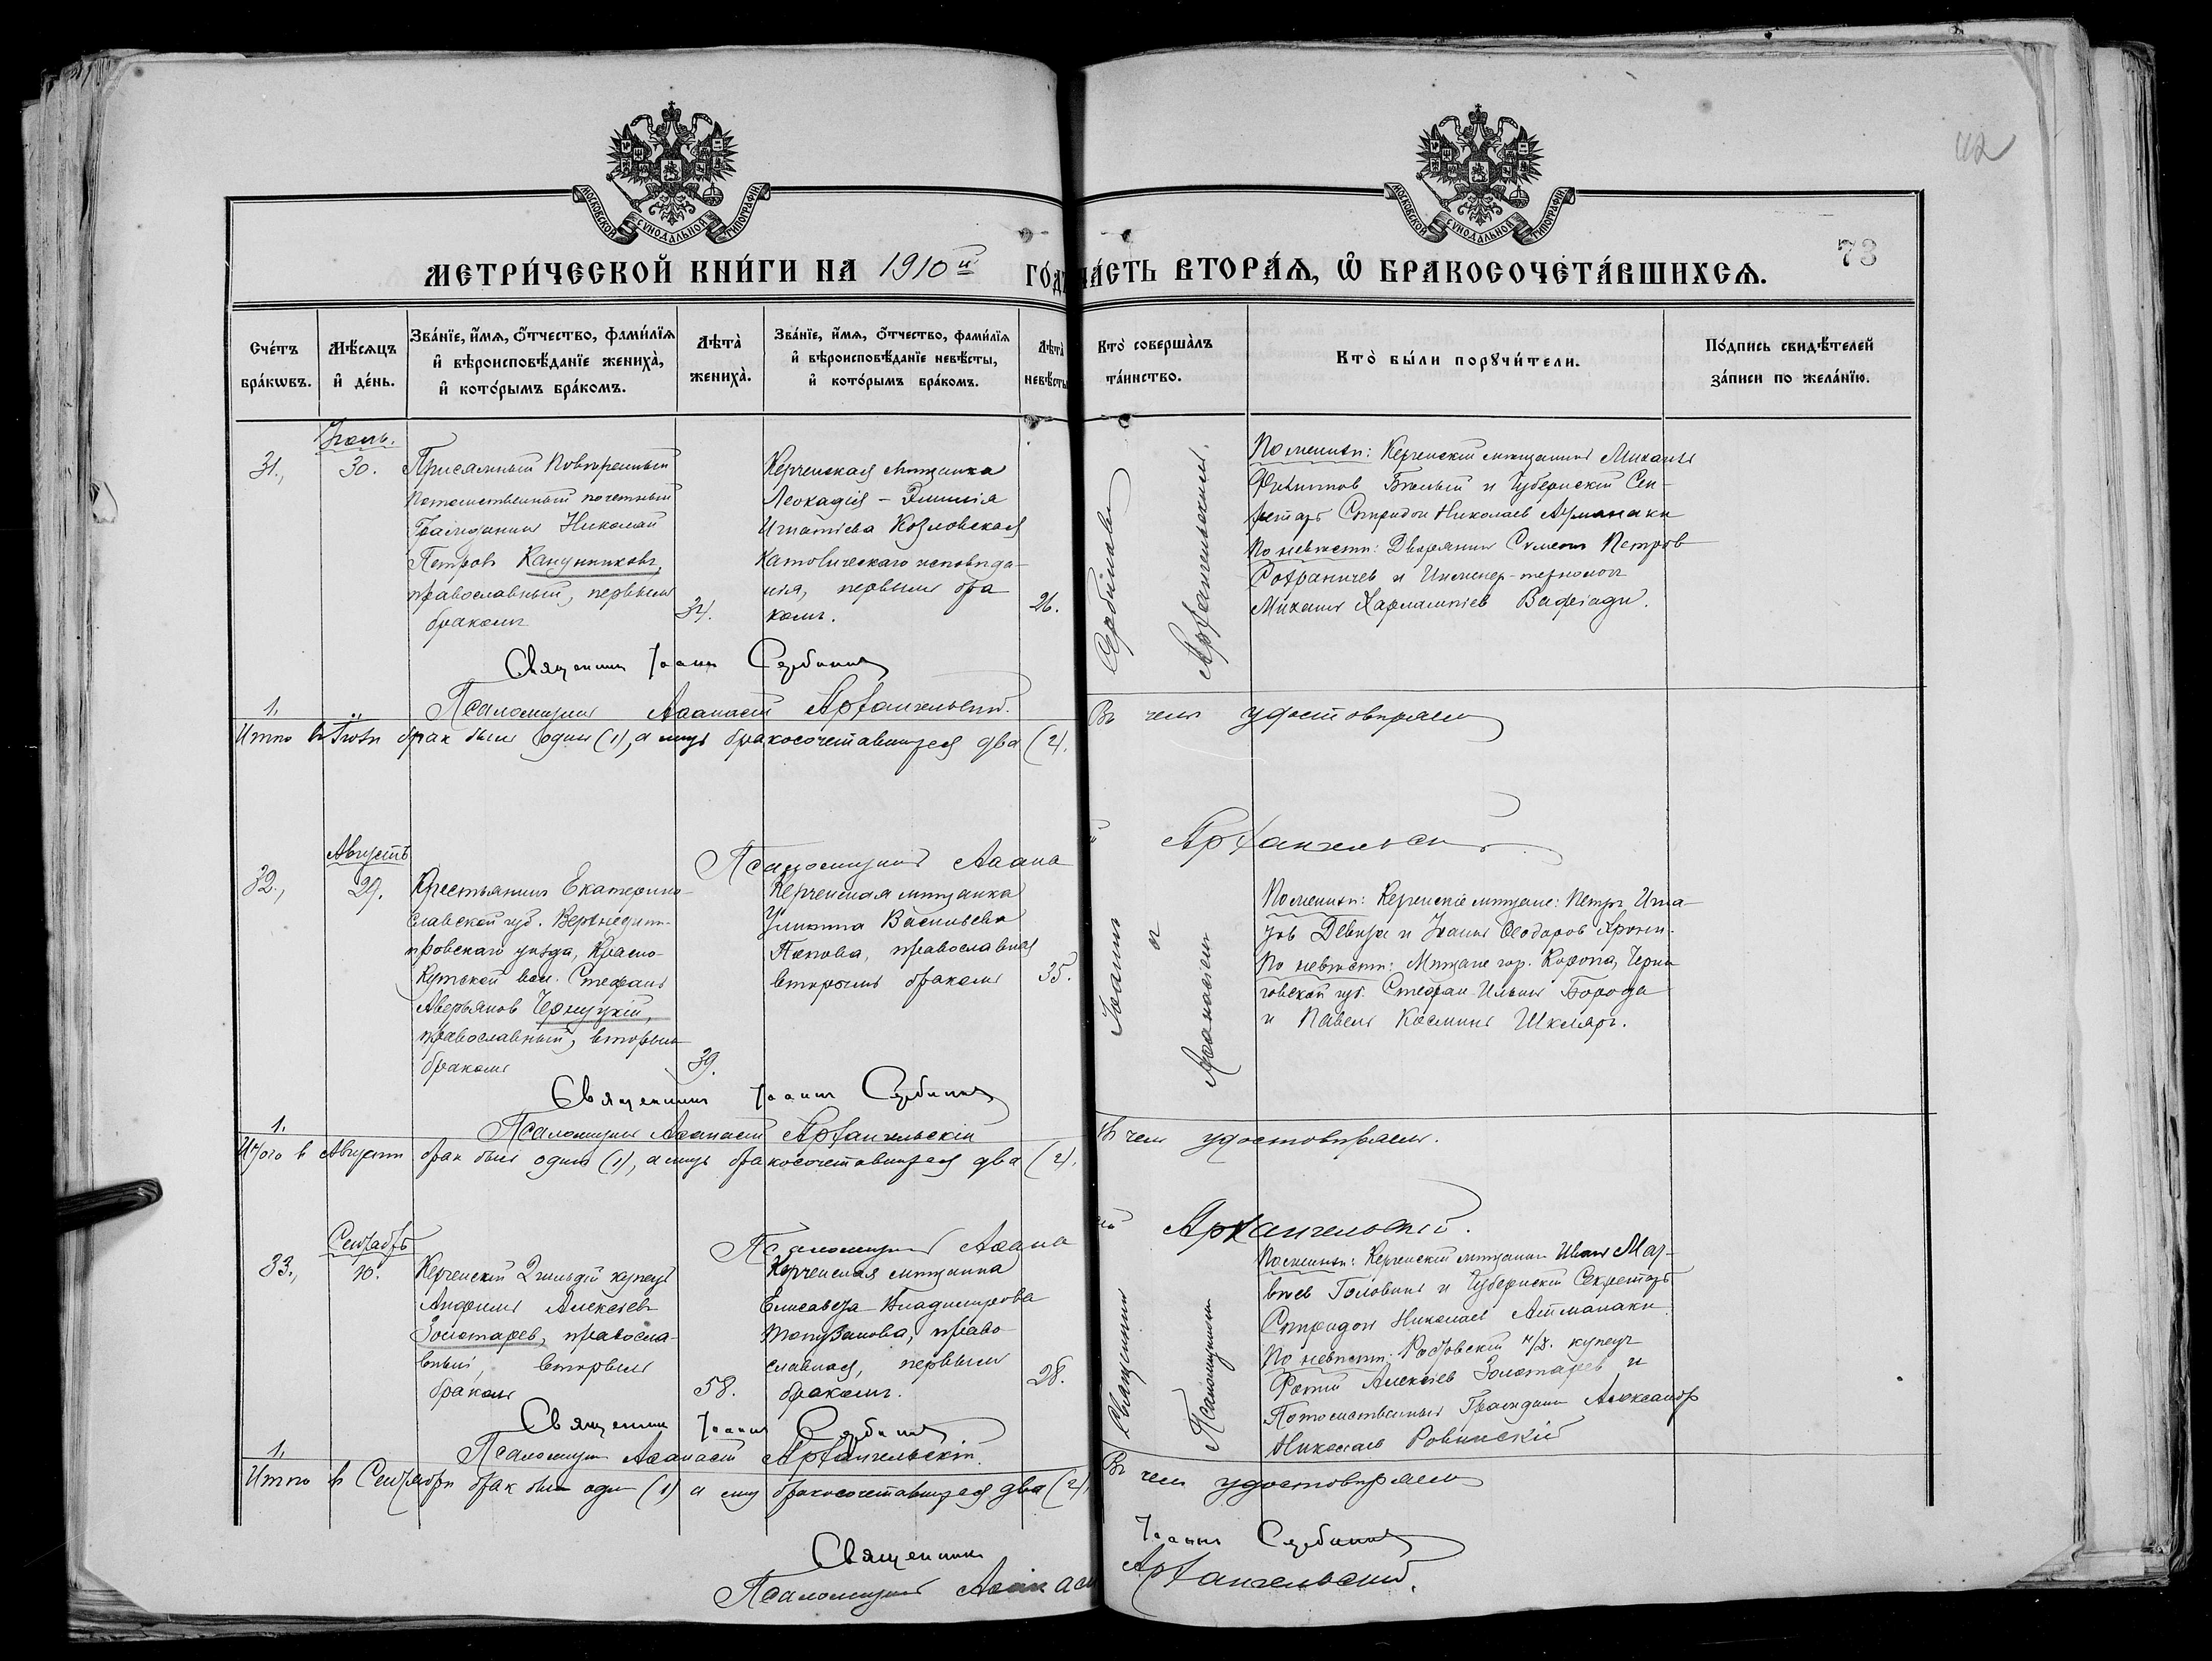 42
МОСКОВСКОЙ СѴНОДАЛЬНОЙ ТИПОГРАФІИ
МОСКОВСКОЙ СѴНОДАЛЬНОЙ ТИПОГРАФІИ
МЕТРИ́ЧЕСКОЙ КНИ́ГИ НА 1910й ГО́ДЪ
ЧА́СТЬ ВТОРА́Ѧ, Ѽ БРАКОСОЧЕТА́ВШИХСѦ.
73
Сче́тъ бра́кѡвъ.
Мѣ́сѧцъ и҆ де́нь.
Зва́нїе, и҆́мѧ, ѻ҆́тчество, фами́лїѧ
и҆ вѣроисповѣ́данїе жениха̀,
и҆ кото́рымъ бра́комъ.
Лѣта̀ жениха̀.
Зва́нїе, и҆́мѧ, ѻ҆́тчество, фами́лїѧ
и҆ вѣроисповѣ́данїе невѣ́сты,
и҆ кото́рымъ бра́комъ.
Лѣта̀ невѣ́сты
Кто̀ соверша́лъ та́инство.
Кто̀ бы́ли порꙋчи́тели.
По́дпись свидѣ́телей за́писи по жела́нїю.
31.,
30.
Присяжный Повѣренный
Потомственный почетный
Гражданинъ Николай
Петровъ Канунниковъ,
православный, первымъ
бракомъ
34.
Керченская мѣщанка
Леокадія - Эмилія
Игнатіева Козловская
Католическаго исповѣда-
нія, первымъ бра
комъ.
26.
Архангельскій
По женихѣ: Керченскій мѣщанинъ Михаилъ
Филиппов Бѣлый и Губернскій Сек-
ретарь Спиридон Николаев Ачманаки
По невѣстѣ: Дворянинъ Петров
и Инженер-технологъ
Михаилъ Харлампіев Вафіади.
Священникъ Іоаннъ Сербиновъ
Псаломщикъ Аѳанасій Архангельскій.
1.
Итого въ Іюлѣ брак былъ один (1), а лицъ бракосочетавшихся два (2).
Въ чемъ удостовѣряемъ
Августъ
Псаломщикъ Аѳана
Архангельскій
32.,
29.
Крестьянинъ Екатерино-
славской губ. Верхнеднѣ-
провскаго уѣзда, Красно-
Кутской вол. Стефанъ
Аверьянов Чернуцкій,
православный, вторымъ
бракомъ
39.
Керченская мѣщанка
Васильева
Попова, православная
вторымъ бракомъ
35.
Іоаннъ
и
Аѳанасій
По женихѣ: Керченскіе мѣщане: Петръ Игна
и Іоаннъ Ѳеодоров
По невѣстѣ: Мѣщане гор. Коропа, Черни
говской губ. Стефан Ильинъ Борода
и Павелъ Косминъ Шкляръ.
Священникъ Іоаннъ Сербиновъ
Псаломщикъ Аѳанасій Архангельскій
1.
Итого в Августѣ брак былъ один (1), а лицъ бракосочетавшихся два (2).
Въ чемъ удостовѣряемъ.
Сентябрь
Псаломщикъ Аѳана
Архангельскій.
33.,
10.
Керченскій 2 гильдіи купецъ
Анфимъ Алексіев
Золотарев, правосла-
вный, вторымъ
бракомъ
58.
Керченская мѣщанка
Елисавета Владимірова
Топузанова, право
славная, первымъ
бракомъ.
28.
Священникъ
Псаломщикъ
По женихѣ: Керченскій мѣщанин Иванъ Мат-
вѣев Головинъ и Губернскій Секретарь
Спиридон Николаев Ачманаки
По невѣстѣ: Ростовскій н/Д. купецъ
Фотій Алексіев Золотарев и
Потомственный Гражданин Александр
Николаев Ровинскій
Священникъ Іоаннъ Сербиновъ
Псаломщикъ Аѳанасій Архангельскій.
1.
Итого в Сентябрѣ брак былъ один (1) а лицъ бракосочетавшихся два (2).
Въ чемъ удостовѣряемъ
Священникъ Іоаннъ Сербиновъ
Псаломщикъ Аѳанасій Архангельскій.